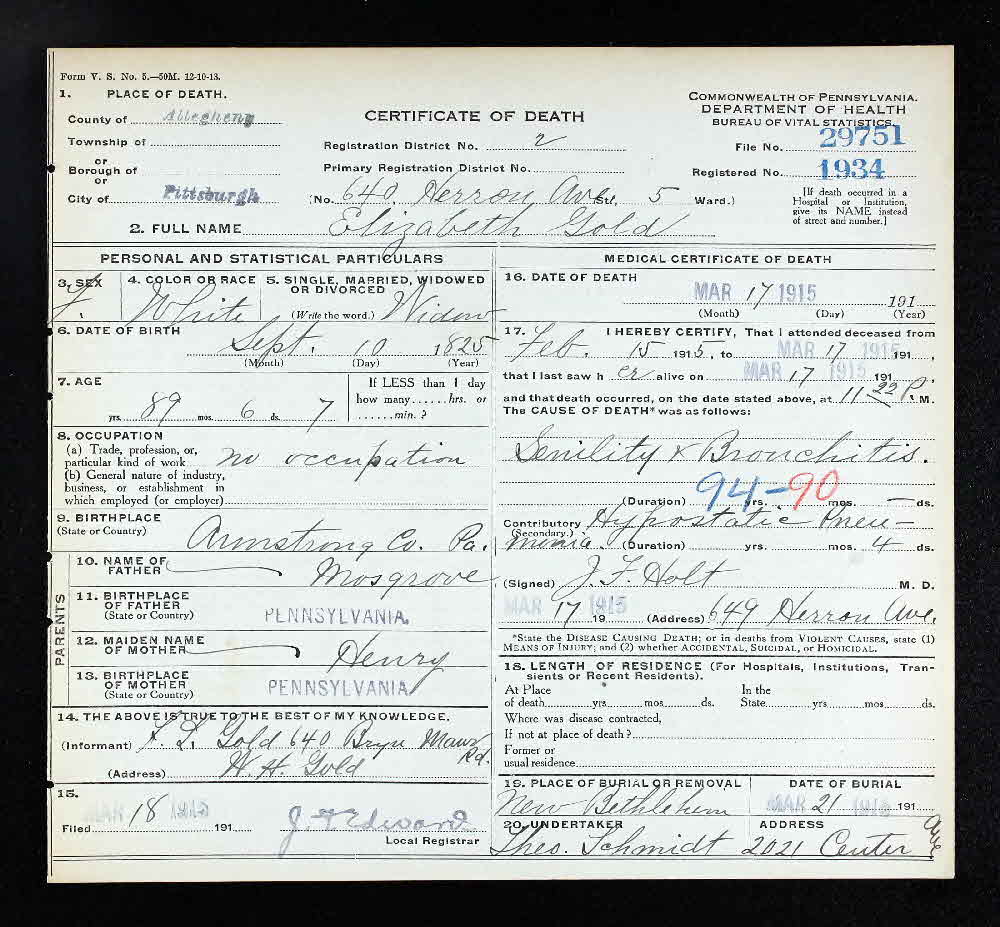 Form V. S. No. 5.—50M. 12-10-13.
1. PLACE OF DEATH.
County of Allegheny
Township of
or
Borough of
or
City of Pittsburgh
CERTIFICATE OF DEATH
Registration District No. 2
Primary Registration District No.
(No. 640 Herron Ave St., 5 Ward.)
COMMONWEALTH OF PENNSYLVANIA.
DEPARTMENT OF HEALTH
BUREAU OF VITAL STATISTICS.
File No. 29751
Registered No. 1934
[If death occurred in a
Hospital or Institution,
give its NAME instead
of street and number.]
2. FULL NAME Elizabeth Gold
PERSONAL AND STATISTICAL PARTICULARS
3. SEX
f.
4. COLOR OR RACE
White
5. SINGLE, MARRIED, WIDOWED
OR DIVORCED
(Write the word.) Widow
6. DATE OF BIRTH
Sept. 10 1825
(Month) (Day) (Year)
7. AGE
yrs. 89 mos. 6 ds. 7
If LESS than 1 day
how many......hrs. or
......min.?
8. OCCUPATION
(a) Trade, profession, or,
particular kind of work no occupation
(b) General nature of industry,
business, or establishment in
which employed (or employer)
9. BIRTHPLACE
(State or Country)
Armstrong Co. Pa.
PARENTS
10. NAME OF
FATHER
Mosgrove
11. BIRTHPLACE
OF FATHER
(State or Country)
PENNSYLVANIA.
12. MAIDEN NAME
OF MOTHER
Henry
13. BIRTHPLACE
OF MOTHER
(State or Country)
PENNSYLVANIA
14. THE ABOVE IS TRUE TO THE BEST OF MY KNOWLEDGE.
(Informant) F. L. Gold 640 Bryn Mawr Rd.
(Address) H. H. Gold
15.
Filed MAR 18 1915 191
J. F. Edwards
Local Registrar
MEDICAL CERTIFICATE OF DEATH
16. DATE OF DEATH
MAR 17 1915 191
(Month) (Day) (Year)
17. I HEREBY CERTIFY, That I attended deceased from
Feb. 15 1915, to MAR 17 1915 191,
that I last saw her alive on MAR 17 1915 191
and that death occurred, on the date stated above, at 11 22 P. M.
The CAUSE OF DEATH* was as follows:
Senility & Bronchitis.
94-90
(Duration) yrs. mos. — ds.
Contributory Hypostatic Pneu-
(Secondary.)
monia. (Duration) yrs. mos. 4 ds.
(Signed) J. F. Holt M. D.
MAR 17 1915 19 (Address) 649 Herron Ave.
*State the DISEASE CAUSING DEATH; or in deaths from VIOLENT CAUSES, state (1)
MEANS OF INJURY; and (2) whether ACCIDENTAL, SUICIDAL, or HOMICIDAL.
18. LENGTH OF RESIDENCE (For Hospitals, Institutions, Tran-
sients or Recent Residents).
At Place
of death yrs mos. ds.
In the
State yrs mos. ds.
Where was disease contracted,
If not at place of death?
Former or
usual residence
19. PLACE OF BURIAL OR REMOVAL
New Bethlehem
DATE OF BURIAL
MAR 21 1915 191
20. UNDERTAKER
Theo. Schmidt
ADDRESS
2021 Center Ave